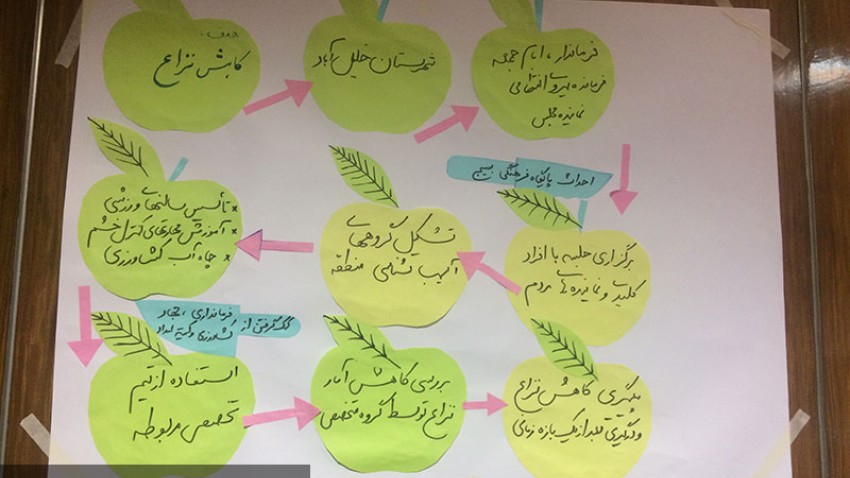 هدف:
کاهش نزاع
شهرستان خلیل آباد
فرماندار، امام جمعه
فرمانده نیروی انتظامی
نماینده مجلس
احداث پایگاه فرهنگی بسیج
برگزاری جلسه با افراد
کلیدی و نماینده های مردم
تشکیل گروههای
آسیب شناسی منطقه
* تأسیس سالنهای ورزشی
* آموزش مهارتهای کنترل خشم
* چاه آب کشاورزی
کمک گرفتن از فرمانداری، جهاد
کشاورزی و کمیته امداد
استفاده از تیم
تخصصی مربوطه
بررسی کاهش آمار
نزاع توسط گروه تخصصی
پیگیری کاهش نزاع
بعد از یک بازه زمانی